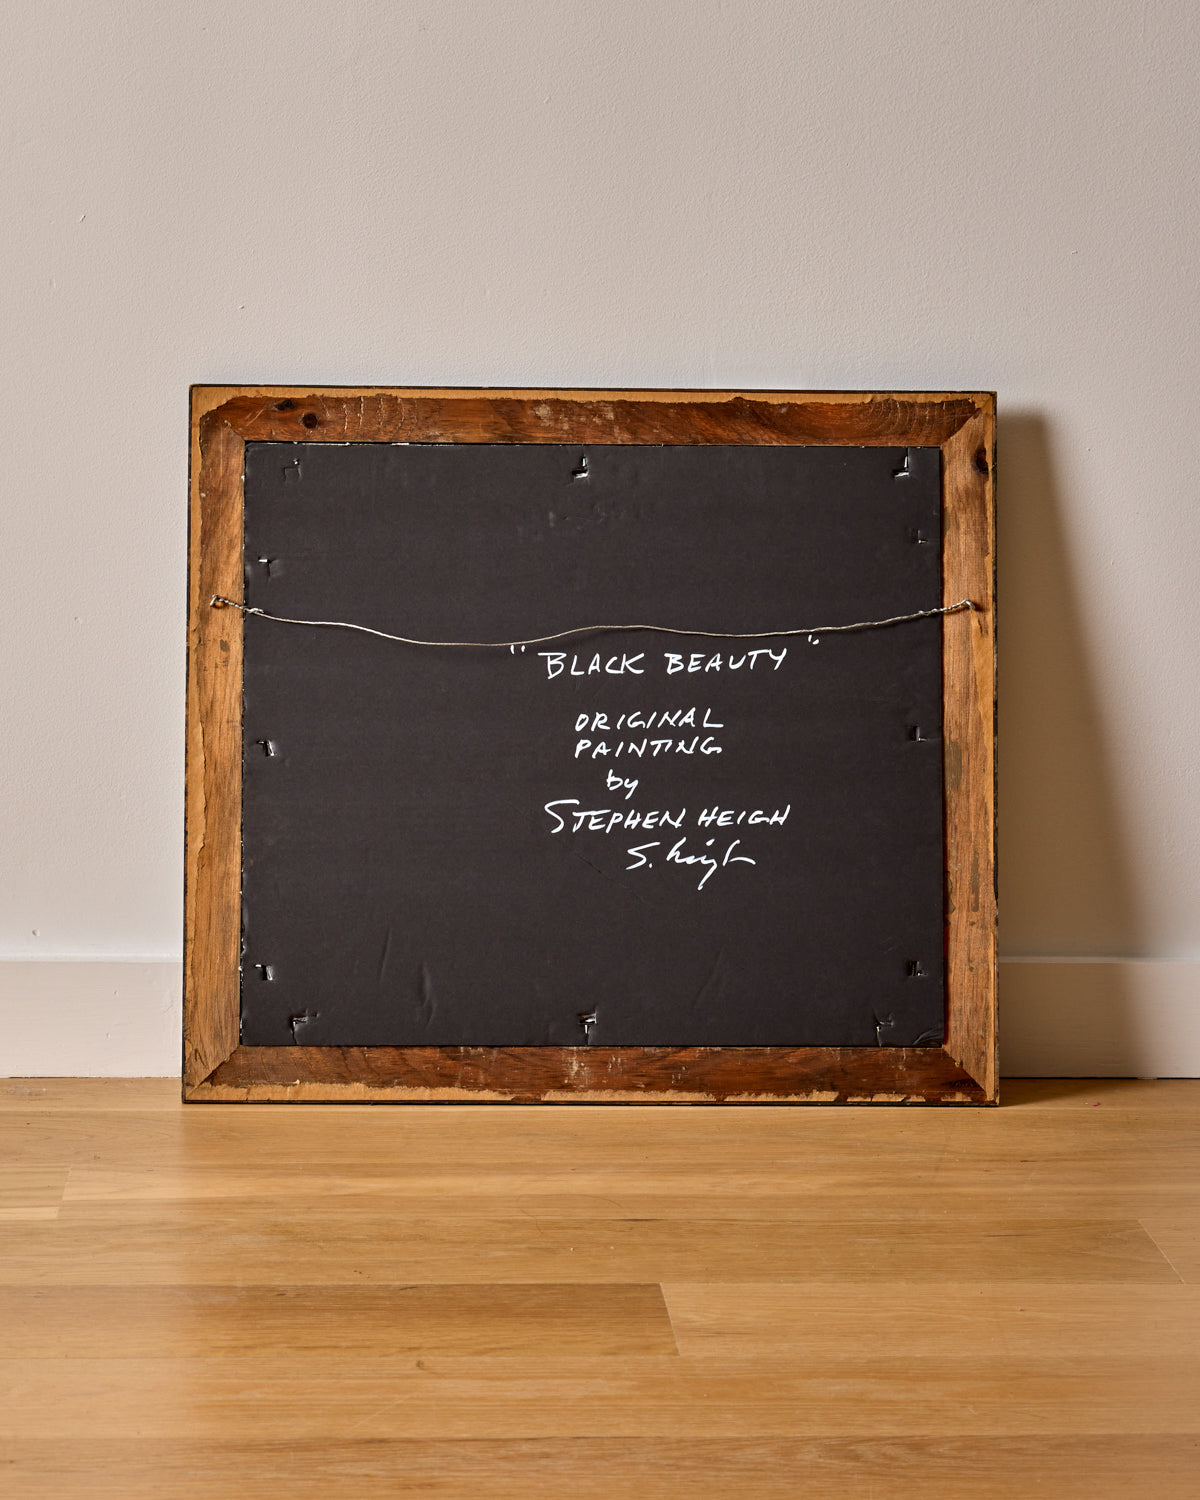 "BLACK BEAUTY"
ORIGINAL
PAINTING
by
STEPHEN HEIGH
S. Heigh